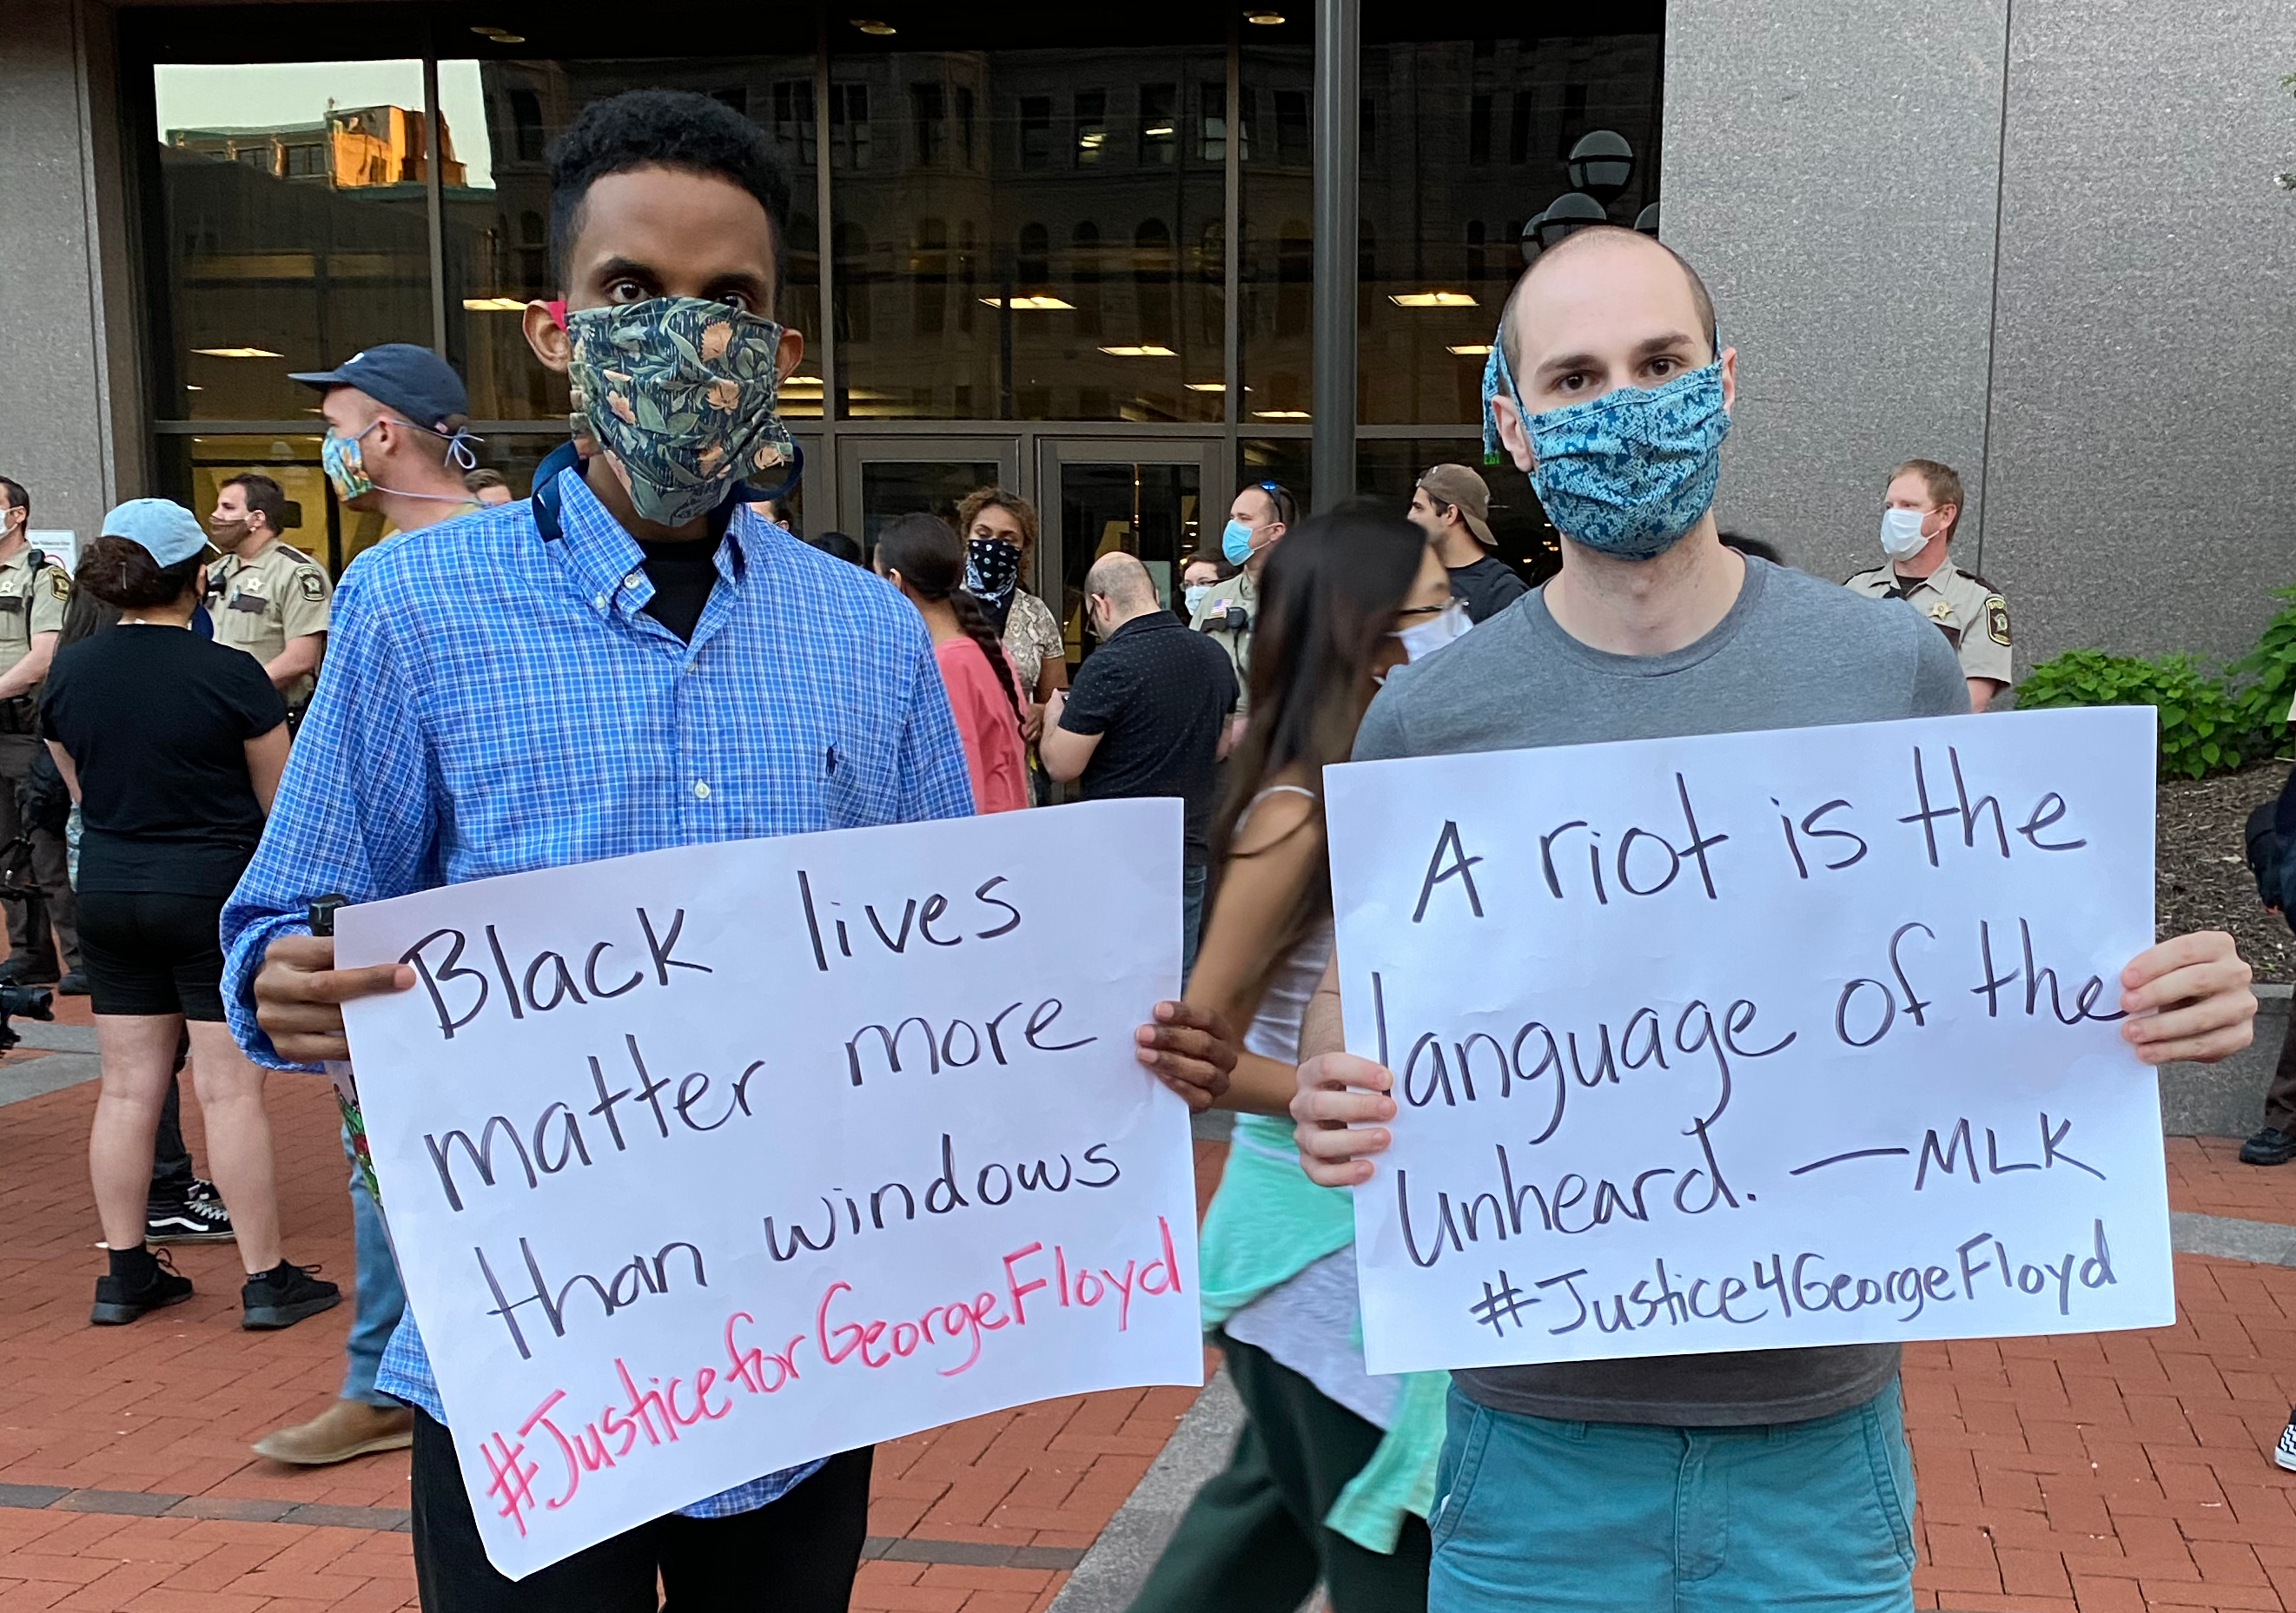 Black lives
matter more
than windows
#JusticeforGeorgeFloyd
A riot is the
language of the
unheard. —MLK
#Justice4GeorgeFloyd